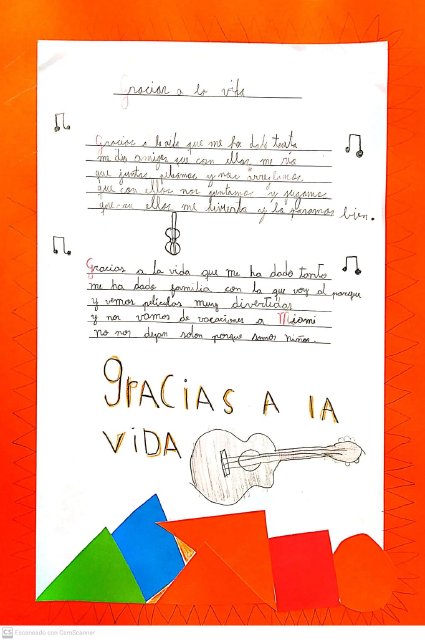 Gracias a la vida
Gracias a la vida que me ha dado tanto
me dio amigos que con ellos me río
que juntos peleamos y nos arreglamos
que con ellos nos juntamos y jugamos
que con ellos me divierto y la pasamos bien.
Gracias a la vida que me ha dado tanto
me ha dado familia con la que voy al parque
y vemos peliculas muy divertidas
y nos vamos de vacaciones a Miami
no nos dejan solos porque somos niños.
gRACIAS A lA
ViDA
CS Escaneado con CamScanner